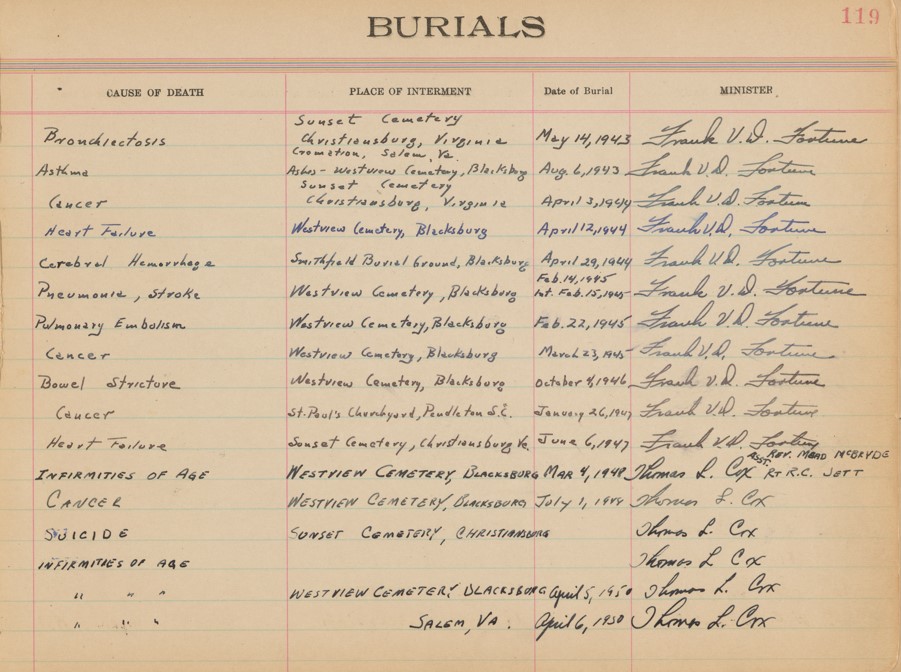 119
BURIALS
CAUSE OF DEATH PLACE OF INTERMENT Date of Burial MINISTER
Sunset Cemetery
Bronchiectosis Christiansburg, Virginia May 14, 1943 Frank V.D. Fortune
Cromation, Salem, Va.
Asthma Ashes - Westview Cemetery, Blacksburg Aug. 6, 1943 Frank V.D. Fortune
Sunset Cemetery
Cancer Christiansburg, Virginia April 3, 1944 Frank V.D. Fortune
Heart Failure Westview Cemetery, Blacksburg April 12, 1944 Frank V.D. Fortune
Cerebral Hemorrhage Smithfield Burial Ground, Blacksburg April 29, 1944 Frank V.D. Fortune
Feb. 14, 1945
Pneumonia, Stroke Westview Cemetery, Blacksburg Int. Feb. 15, 1945 Frank V.D. Fortune
Pulmonary Embolism Westview Cemetery, Blacksburg Feb. 22, 1945 Frank V.D. Fortune
Cancer Westview Cemetery, Blacksburg March 23, 1945 Frank V.D. Fortune
Bowel Stricture Westview Cemetery, Blacksburg October 4, 1946 Frank V.D. Fortune
Cancer St. Paul's Churchyard, Pendleton S.C. January 26, 1947 Frank V.D. Fortune
Heart Failure Sunset Cemetery, Christiansburg Va. June 6, 1947 Frank V.D. Fortune
ASST. REV. MEAD McBRYDE
INFIRMITIES OF AGE WESTVIEW CEMETERY, BLACKSBURG MAR 4, 1948 Thomas L. Cox RT R.C. JETT
CANCER WESTVIEW CEMETERY, BLACKSBURG July 1, Thomas L. Cox
SUICIDE SUNSET CEMETERY, CHRISTIANSBURG Thomas L. Cox
INFIRMITIES OF AGE Thomas L Cox
" " " WESTVIEW CEMETERY BLACKSBURG April 5, 1950 Thomas L. Cox
" " " SALEM, VA. April 6, 1950 Thomas L. Cox